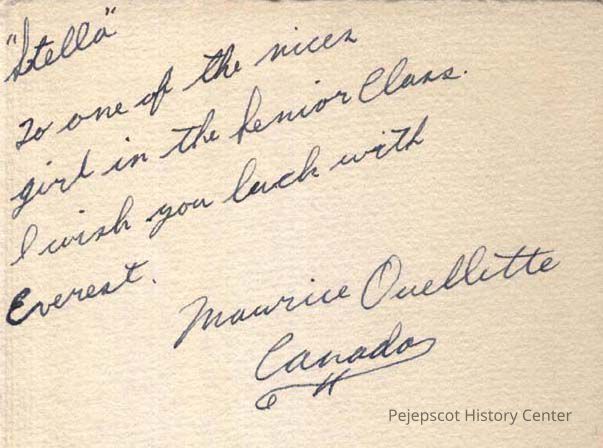 "Stella"
To one of the nices
girl in the Senior Class.
I wish you luck with
Everest.
Maurice Ouellette
Canada
Pejepscot History Center